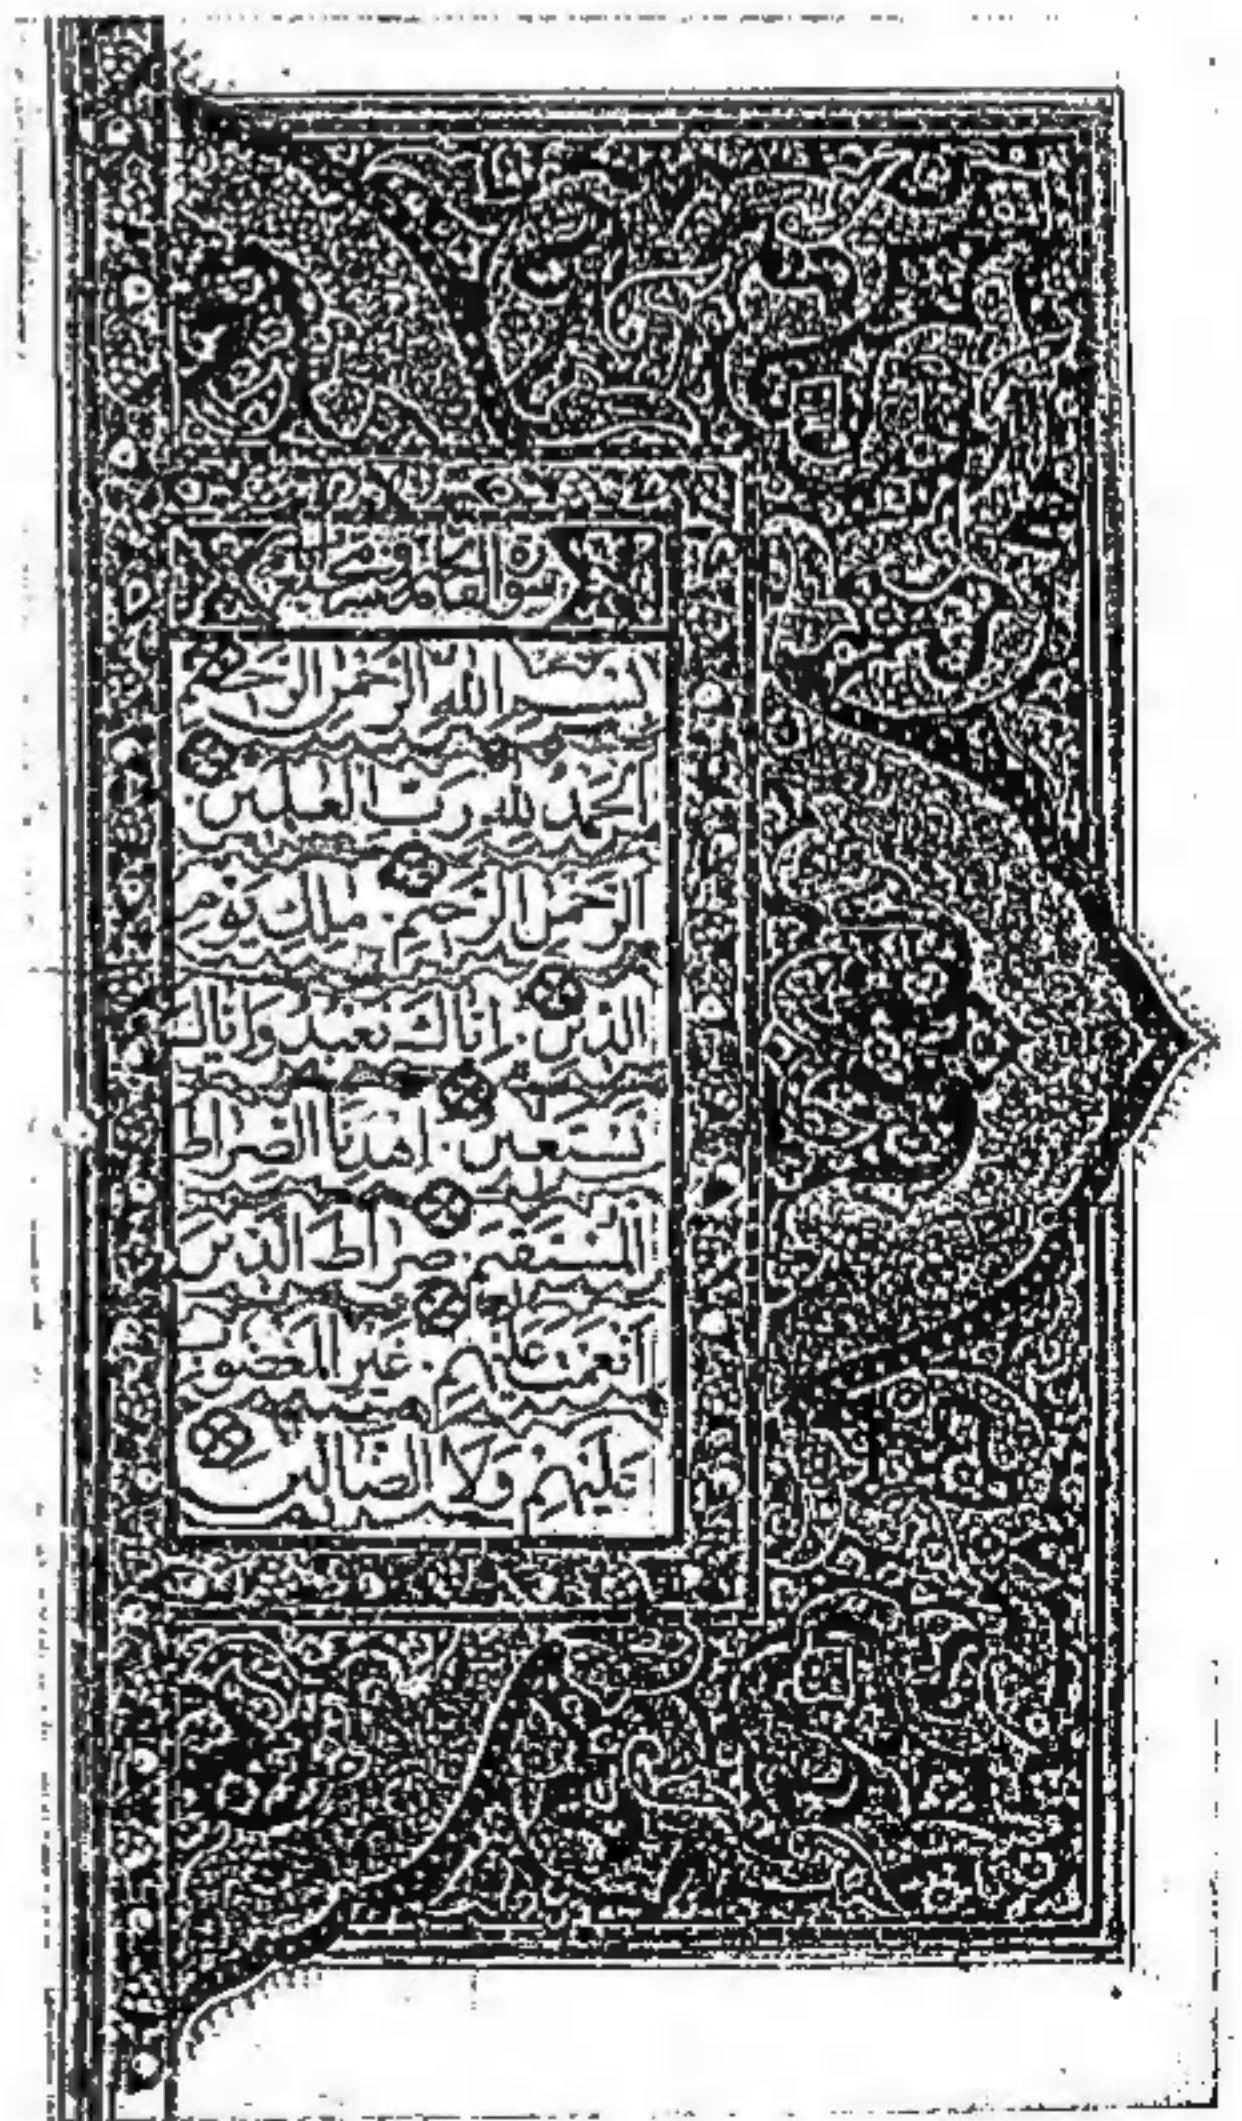 بسم الله الرحمن الرحيم
الحمد لله رب العالمين
الرحمن الرحيم مالك يوم
الدين اياك نعبد واياك
نستعين اهدنا الصراط
المستقيم صراط الذين
انعمت عليهم غير المغضوب
عليهم ولا الضالين